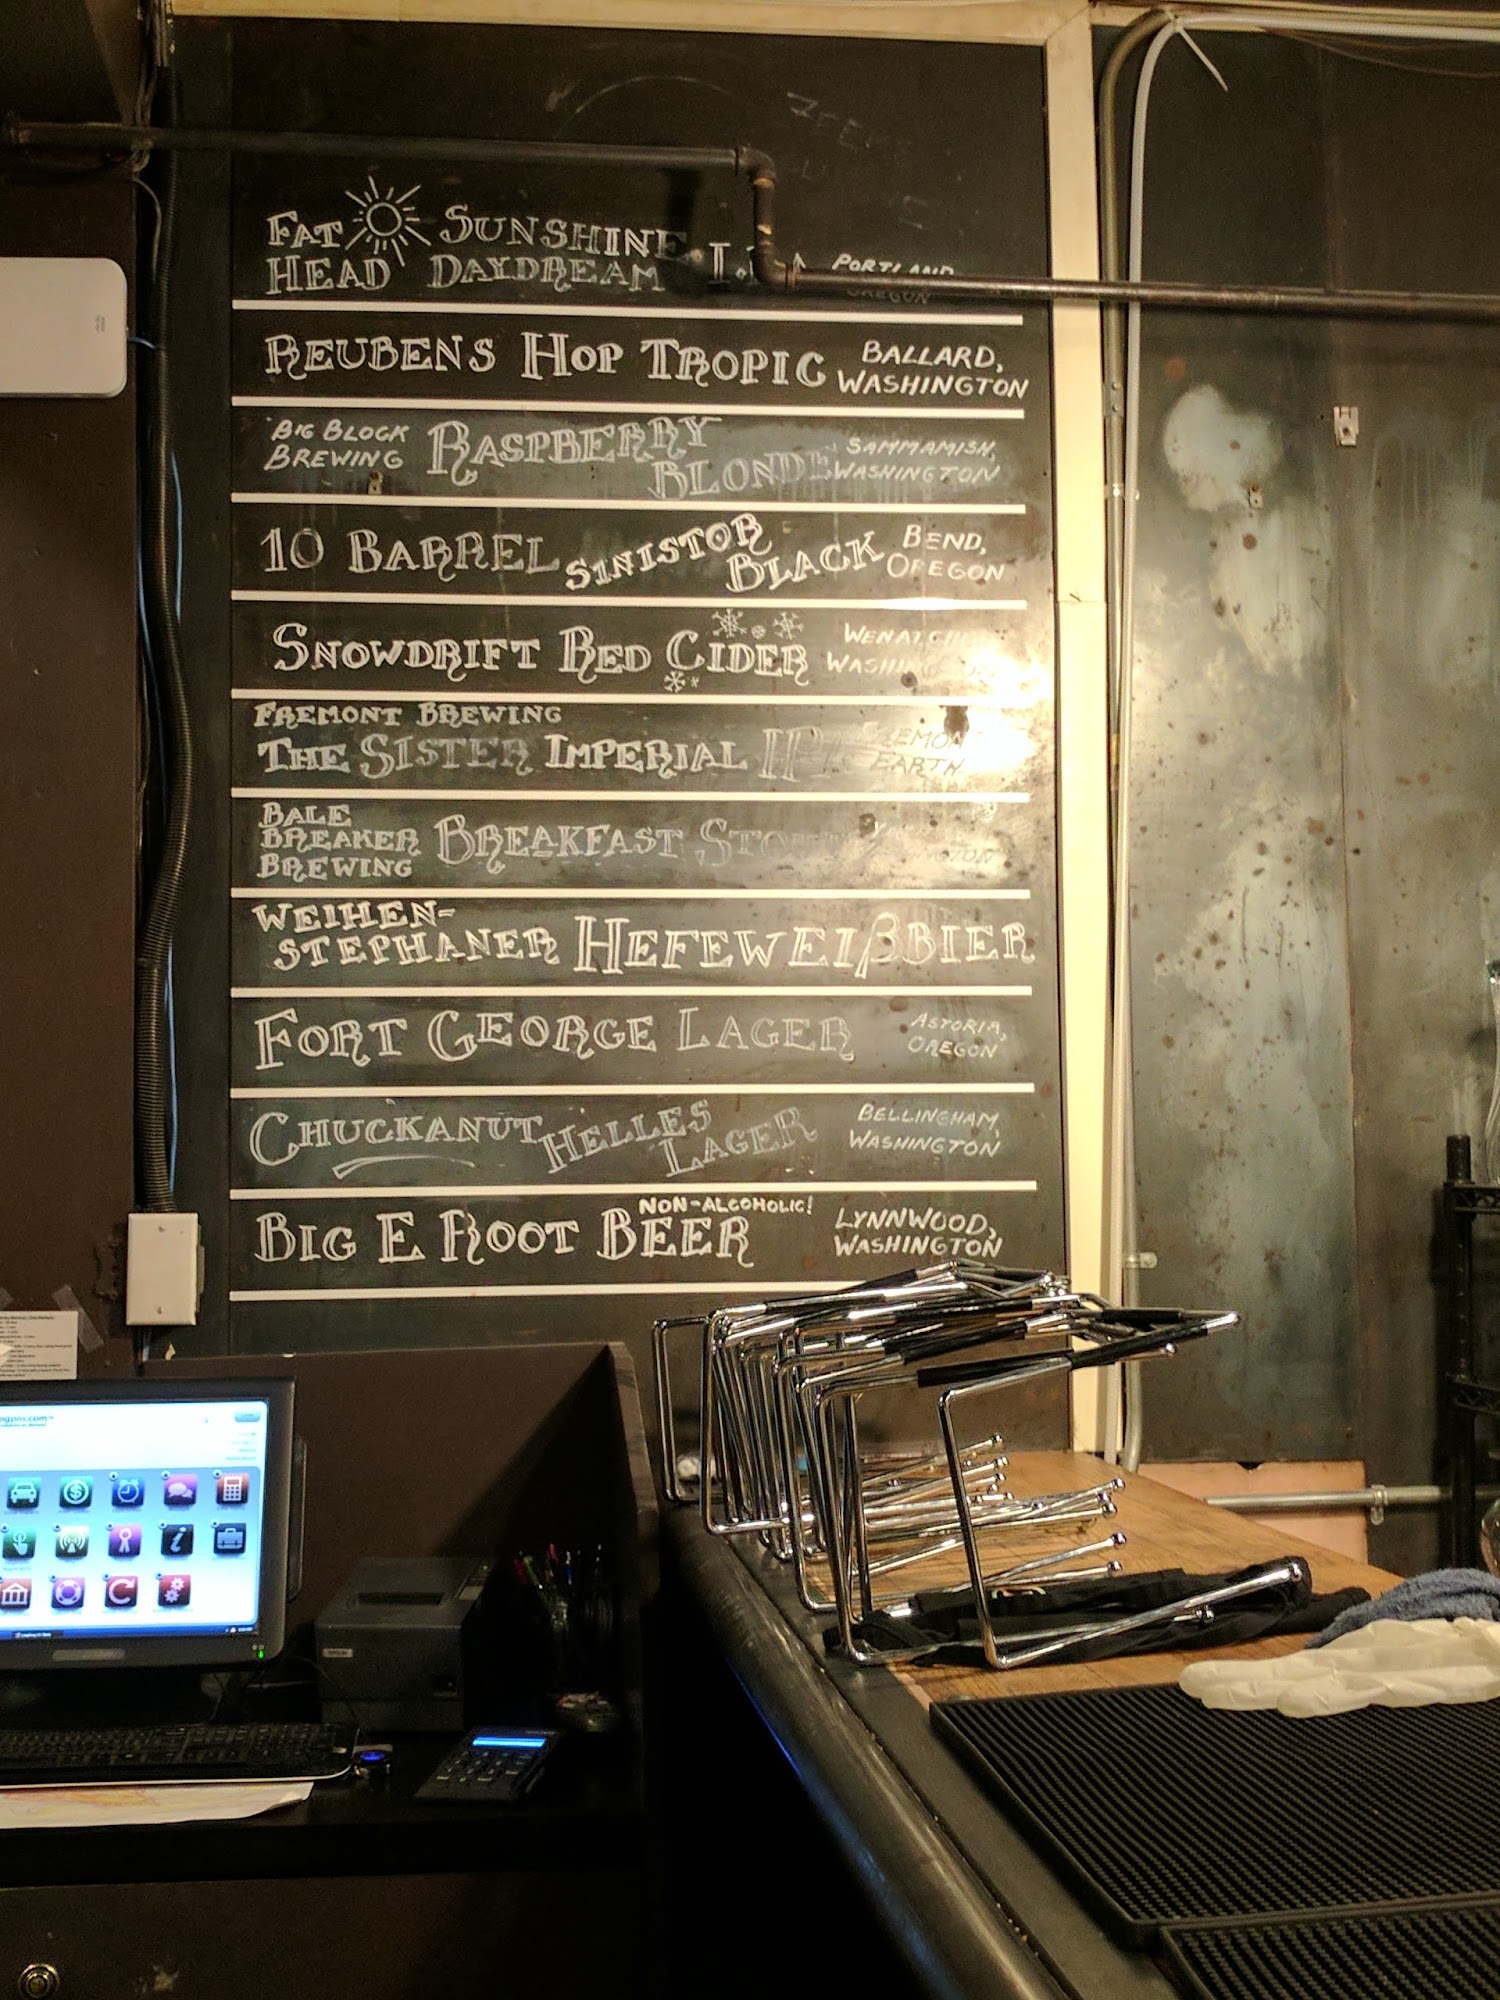 FAT SUNSHINE
HEAD DAYDREAM PORTLAND
OREGON
REUBENS HOP TROPIC BALLARD,
WASHINGTON
BIG BLOCK
BREWING RASPBERRY
BLONDE SAMMAMISH,
WASHINGTON
10 BARREL SINISTOR
BLACK BEND,
OREGON
SNOWDRIFT RED CIDER
FREMONT BREWING
THE SISTER IMPERIAL IPA
EARTH
BALE
BREAKER
BREWING
BREAKFAST STOUT
WEIHEN-
STEPHANER HEFEWEIßBIER
FORT GEORGE LAGER ASTORIA,
OREGON
CHUCKANUT HELLES
LAGER BELLINGHAM,
WASHINGTON
NON-ALCOHOLIC!
BIG E ROOT BEER LYNNWOOD,
WASHINGTON
EPSON